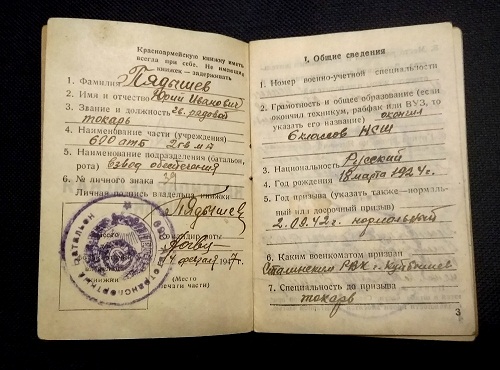 Красноармейскую книжку иметь
всегда при себе. Не имеющих
книжек — задерживать.
1. Фамилия Пядышев
2. Имя и отчество Юрий Иванович
3. Звание и должность гв. рядовой
токарь
4. Наименование части (учреждения)
600 атб 2 гв МА
5. Наименование подразделения (батальон,
рота) Взвод обеспечения
6. № личного знака
Личная подпись владельца книжки
Пядышев
4 февраля 1947 г.
(Место
печати части)
I. Общие сведения
1. Номер военно-учетной специальности
2. Грамотность и общее образование (если
окончил техникум, рабфак или ВУЗ, то
указать его название) окончил
6 классов НСШ
3. Национальность Русский
4. Год рождения 18 марта 1924 г.
5. Год призыва (указать также — нормаль-
ный или досрочный призыв)
2.09.42 г. нормальный
6. Каким военкоматом призван
Сталинского РВК г. Куйбышев
7. Специальность до призыва
токарь
3